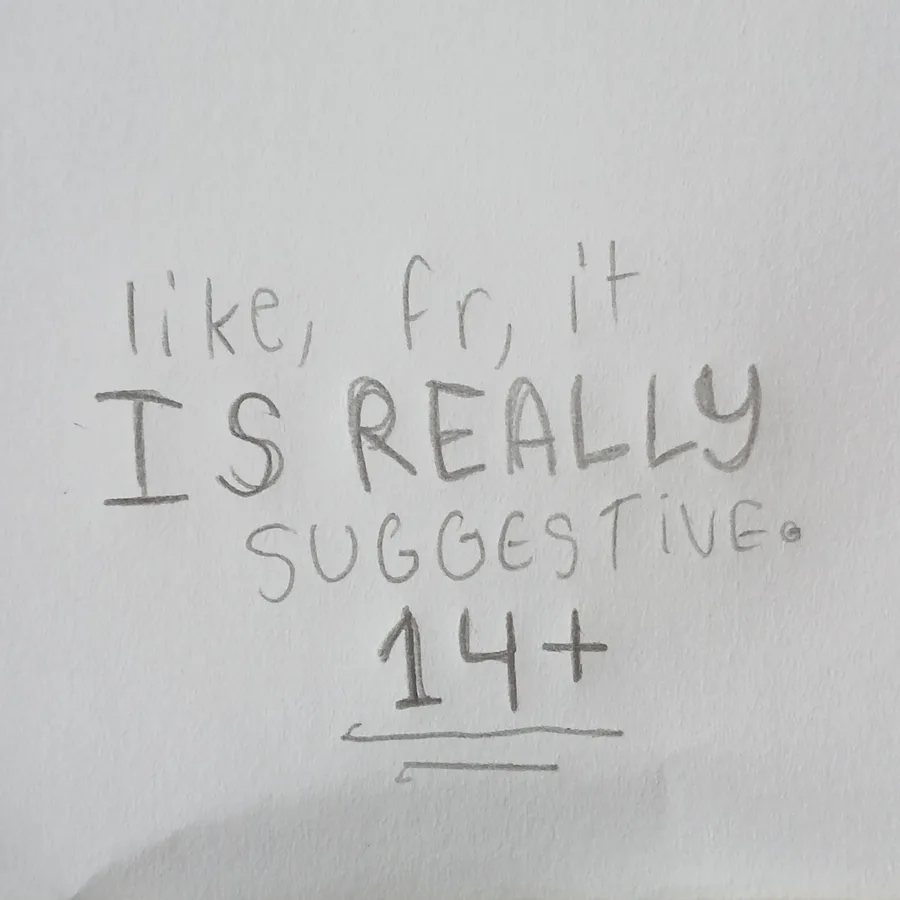 like, fr, it
IS REALLY
SUGGESTiVE.
14+